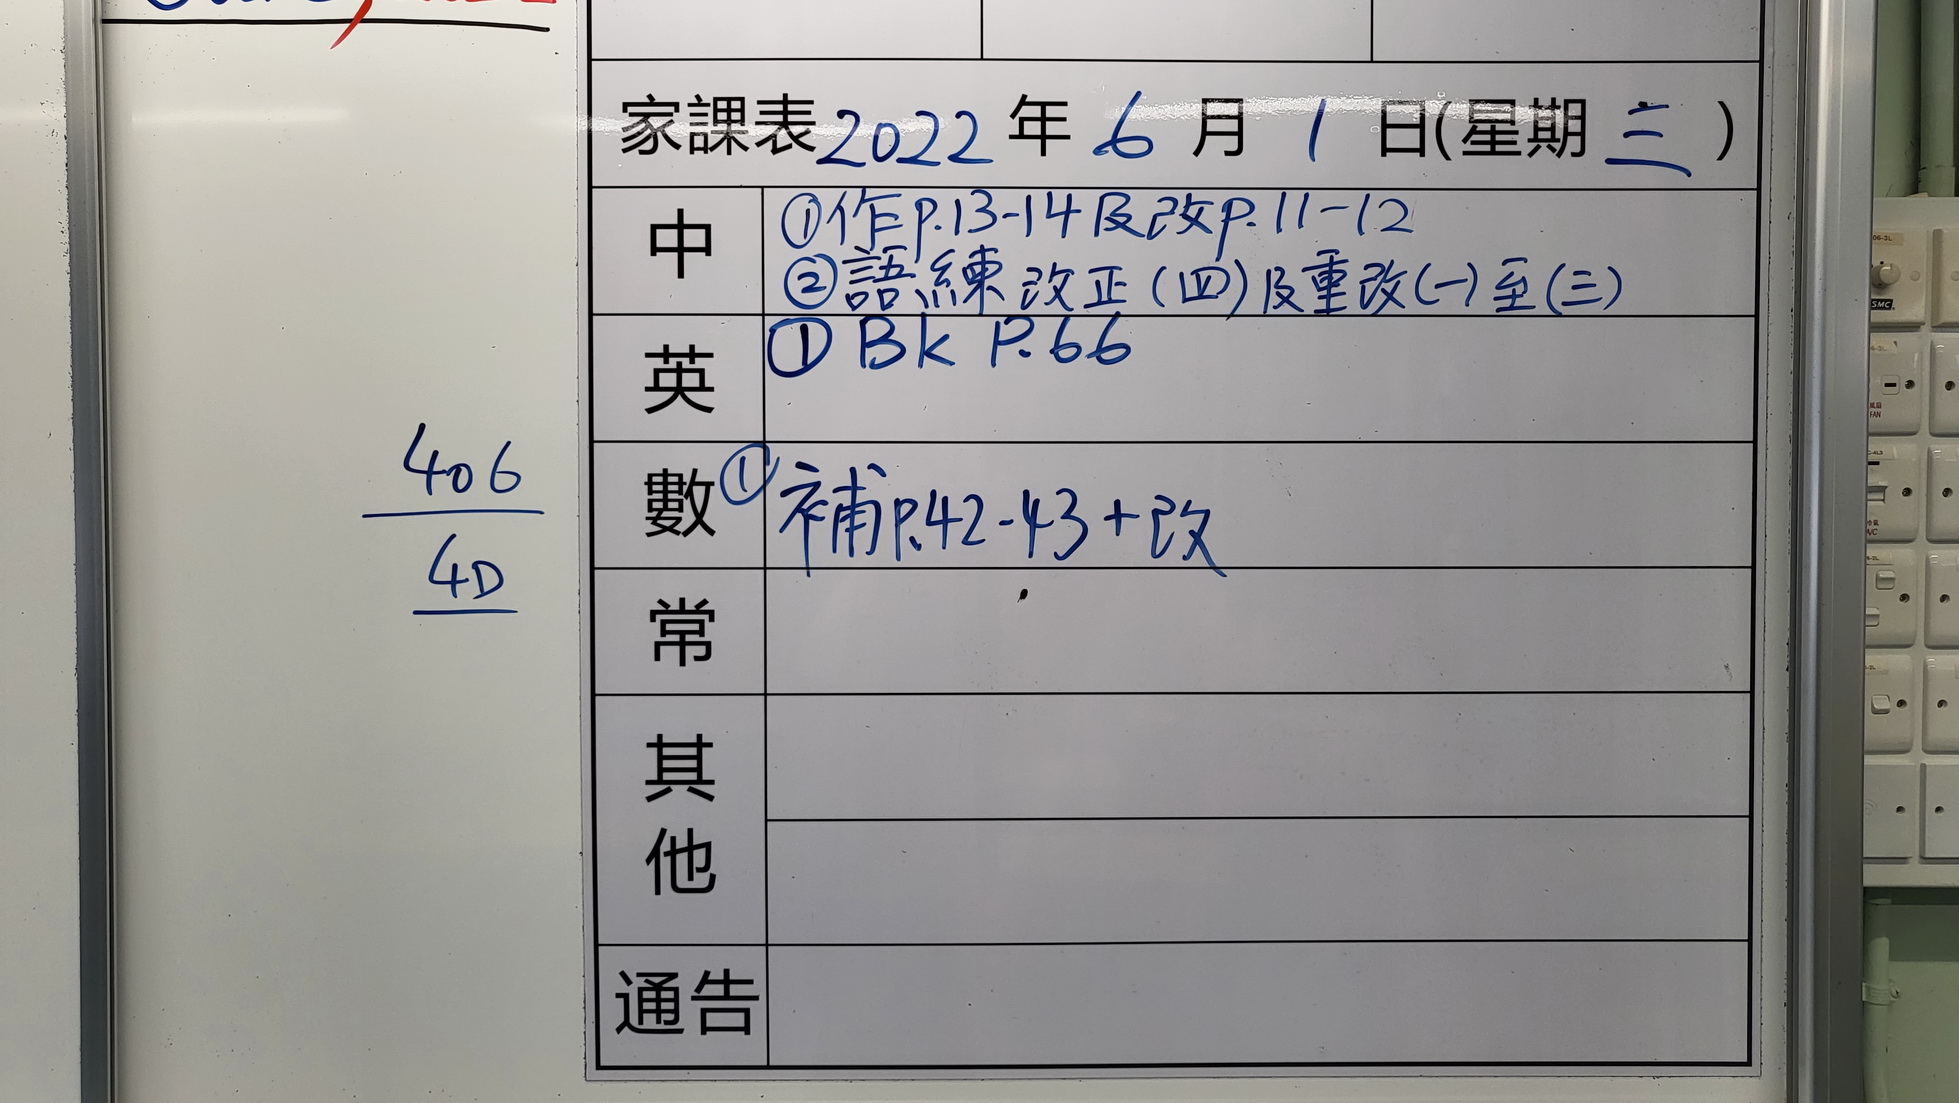 家課表2022年6月1日(星期三)
中
①作p.13-14及改p.11-12
②語練改正(四)及重改(一)至(三)
英
①Bk P.66
數
①補p.42-43+改
常
其他
通告
406
4D
SMC
FAN
A/C